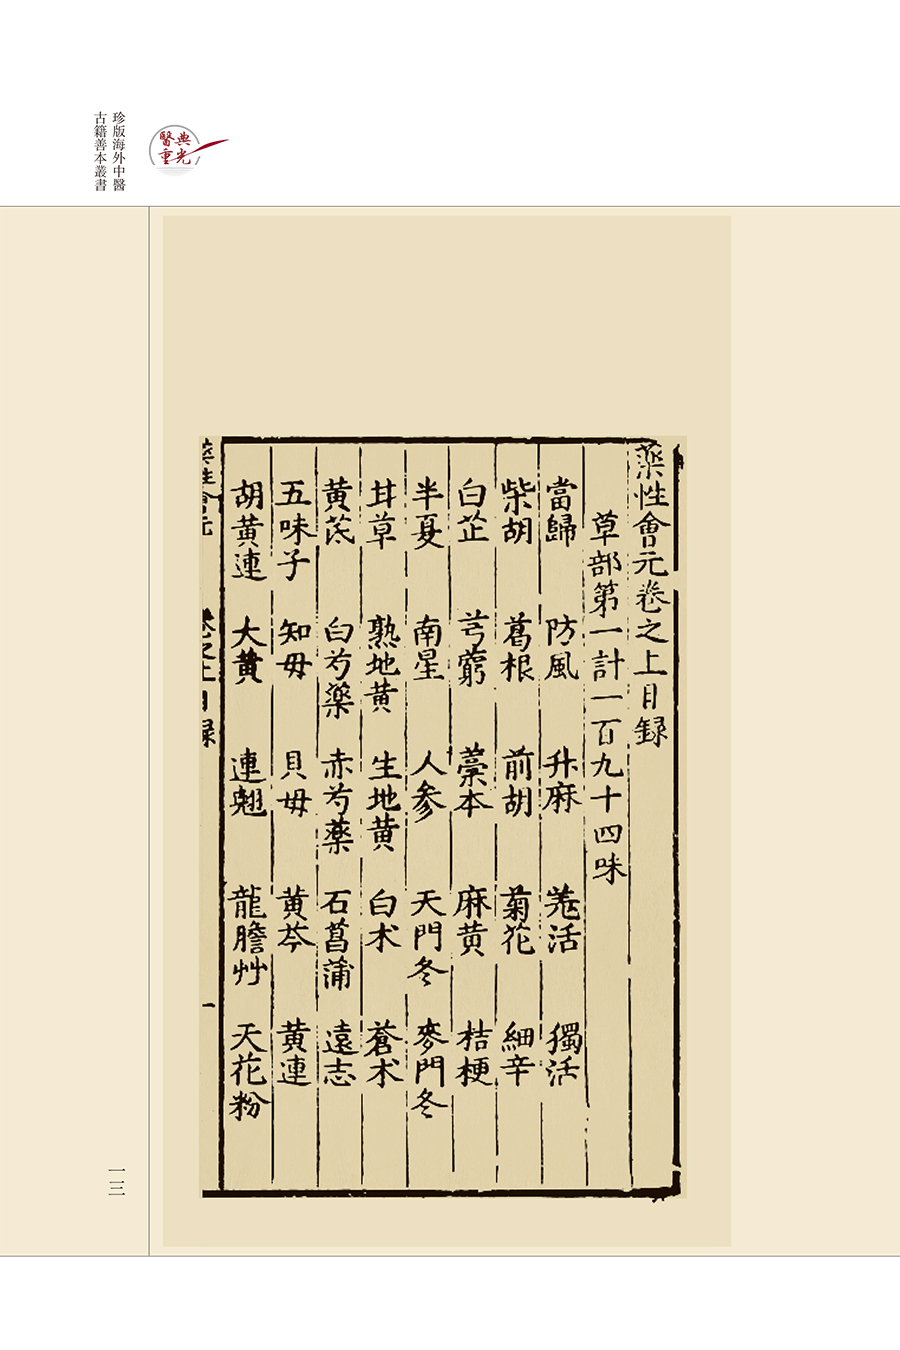 珍版海外中醫
古籍善本叢書
醫典
重光
藥性會元卷之上目録
草部第一計一百九十四味
當歸 防風 升麻 羗活 獨活
柴胡 葛根 前胡 菊花 細辛
白芷 芎藭 藁本 麻黄 桔梗
半夏 南星 人參 天門冬 麥門冬
甘草 熟地黄 生地黄 白术 蒼术
黄芪 白芍藥 赤芍藥 石菖蒲 遠志
五味子 知毋 貝毋 黄芩 黄連
胡黄連 大黄 連翹 龍膽艸 天花粉
藥性會元 卷之上目録 一
一三